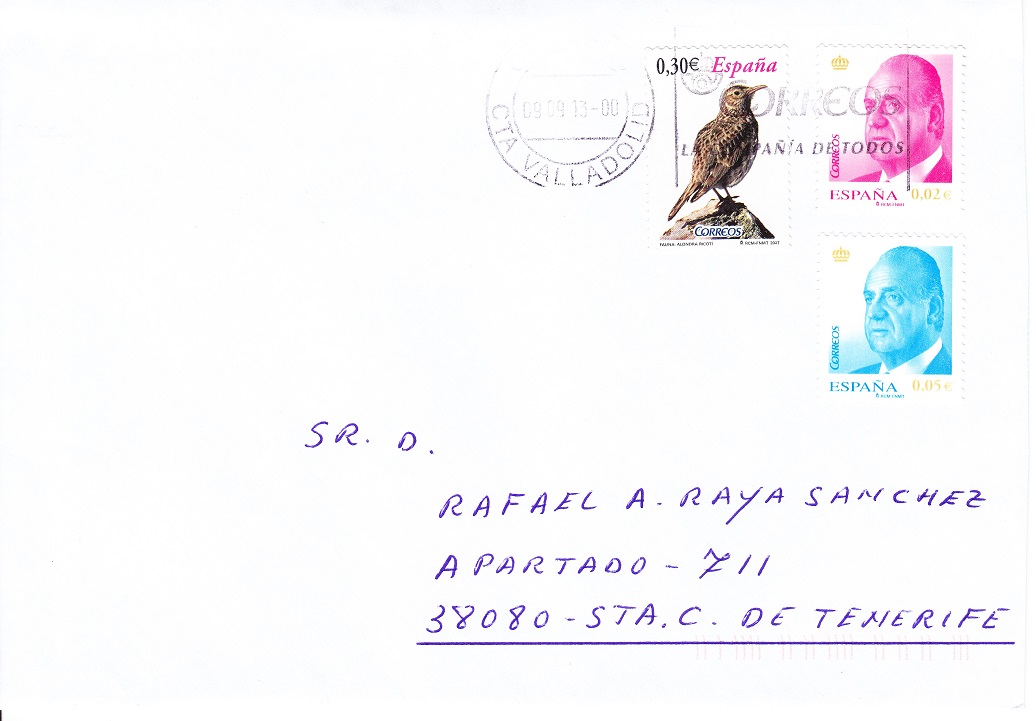 0,30€ España
CORREOS
FAUNA: ALONDRA RICOTI ® RCM-FNMT 2007
CORREOS
ESPAÑA 0,02€
® RCM-FNMT
CORREOS
ESPAÑA 0,05€
® RCM-FNMT
09 09 13-00
CTA VALLADOLID
CORREOS
DE TODOS
SR. D.
RAFAEL A. RAYA SANCHEZ
APARTADO - 711
38080 - STA. C. DE TENERIFE